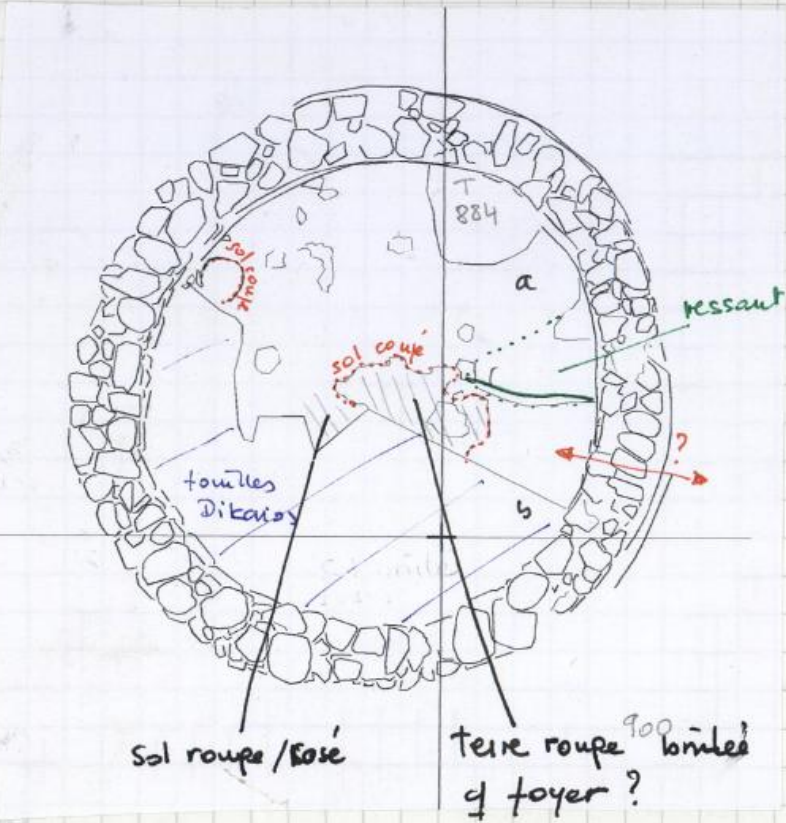 T
884
sol coupé
a
ressaut
sol coupé
?
fouilles
Dikaios
b
Sol rouge / Rosé
terre rouge 900 brulée
cf foyer ?